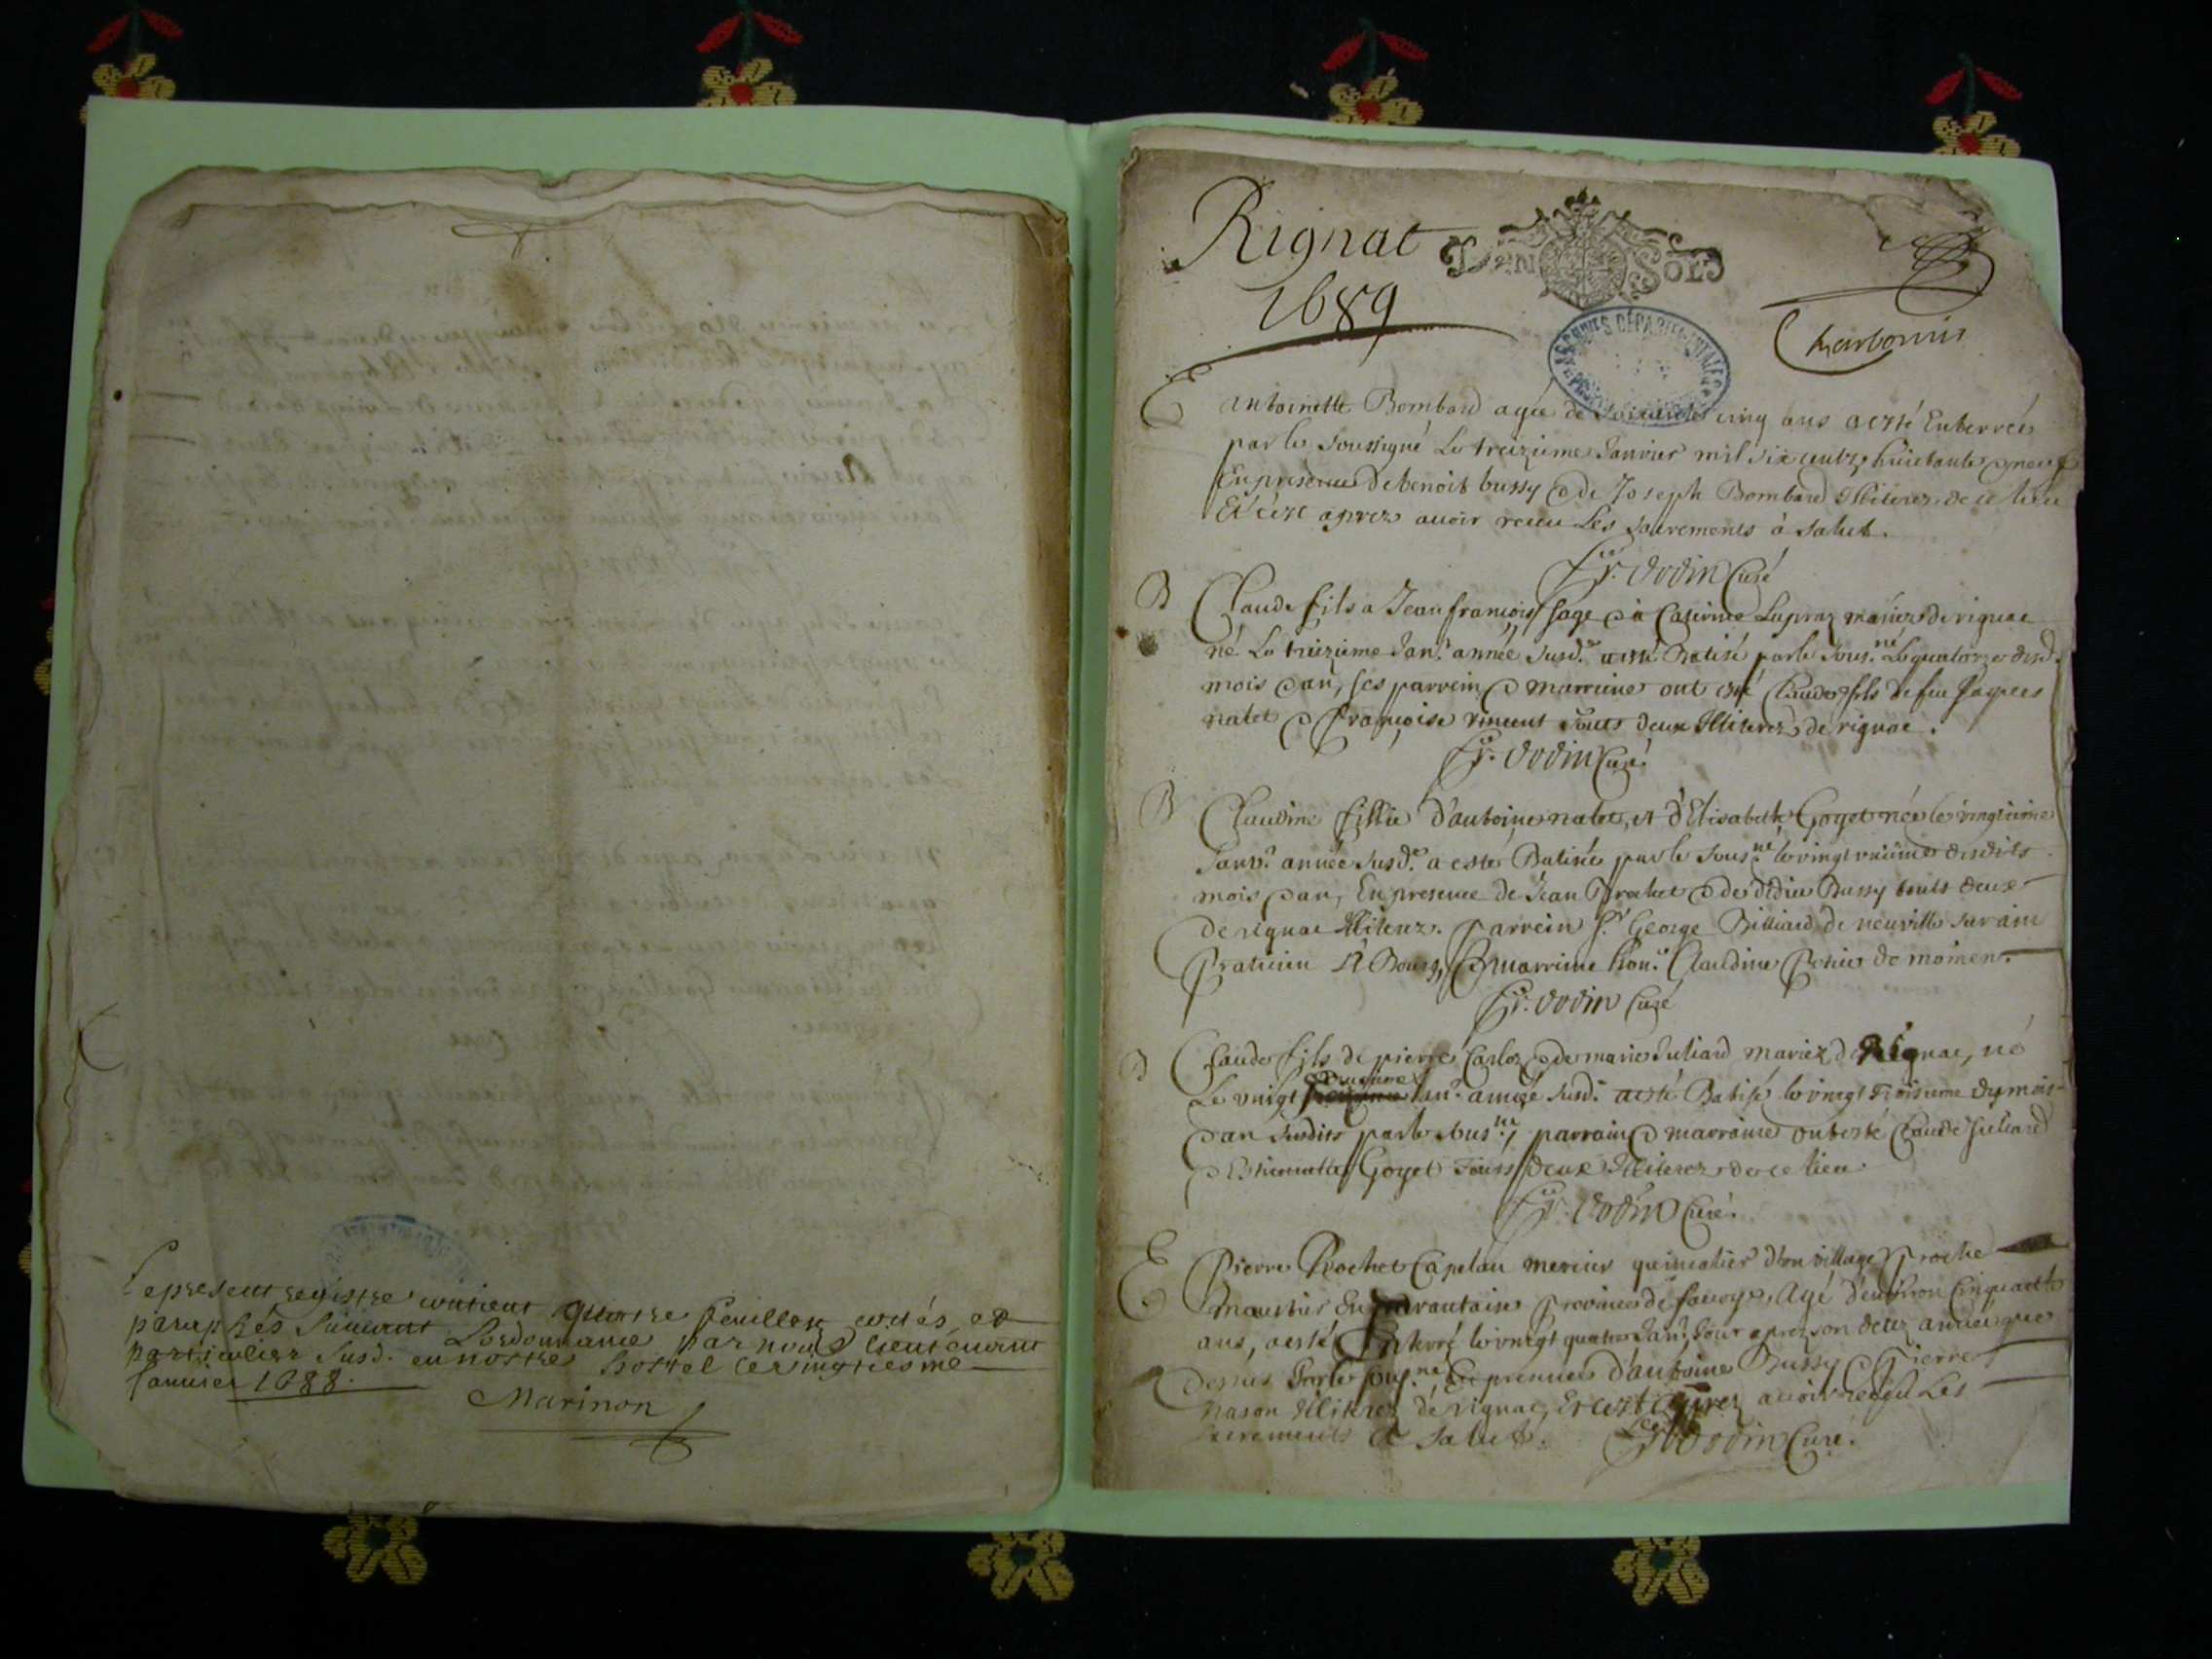 Le present registre contient quattre feuillets cottés, et
paraphés suivant Lordonnance par nous lieutenant
particulier susd. en nostre hostel ce vingtiesme
Janvier 1688.
Marinon
Rignat
1689
DEN SOLS
ARCHIVES DÉPARTEMENTALES
E
Antoinette Bombard agée de soixante cinq ans a esté Enterrée
par le soussigné Le treizieme Janvier mil six cents huictante & neuf
En presence de benoit bussy & de Joseph Bombard Illiterez de ce lieu
Et c'est aprez avoir receu Les sacrements à salut.
Fr. Dodin Curé
B
Claude fils a Jean françois sage & a Lupraz mariez de rignac
né Le treizieme Janr. année susde. a esté Batisé par le sousné. Le quatorze desd.
mois & an, ses parrein & marreine ont esté Claude fils de feu Jacques
nalet & françoise vincent touts deux Illiterez de rignac.
Fr. Dodin Curé
B
Claudine fillie d'antoine nalet, et d'Elisabeth Goyet née le vingtieme
Janvr. année susde. a esté Batisée par le sousné. le vingt unieme desdits
mois & an, En presence de Jean Brochet & de Bussy touts deux
de rignac Illiterez. parrein Sr. George Billiard de neuville sur ain
praticien à Bourg, & marrine hone. Claudine de
Fr. Dodin Curé
B
Claude fils de pierre Carloz & de marie Juliard mariez de Rignac, né
Le vingt deuxieme Janr. année susd. a esté Batisé le vingt troisieme du mois
& an susdits par le sousné, parrain & marraine ont esté Claude Juliard
& Estiennette Goyet touts deux Illiterez de ce lieu
Fr. Dodin Curé.
E
Pierre Rochet Capelan mercier quincalier d'un village proche
moustier En tarantaise province de savoye, Agé d'environ Cinquante
ans, a esté Enterré le vingt quatre Janr. Jour aprez son decez année que
dessus par le sousné. En presence d'antoine Bussy & Pierre
nason Illiterez de rignac, Et c'est aprez avoir receu Les
sacrements à salut. Fr. Dodin Curé.